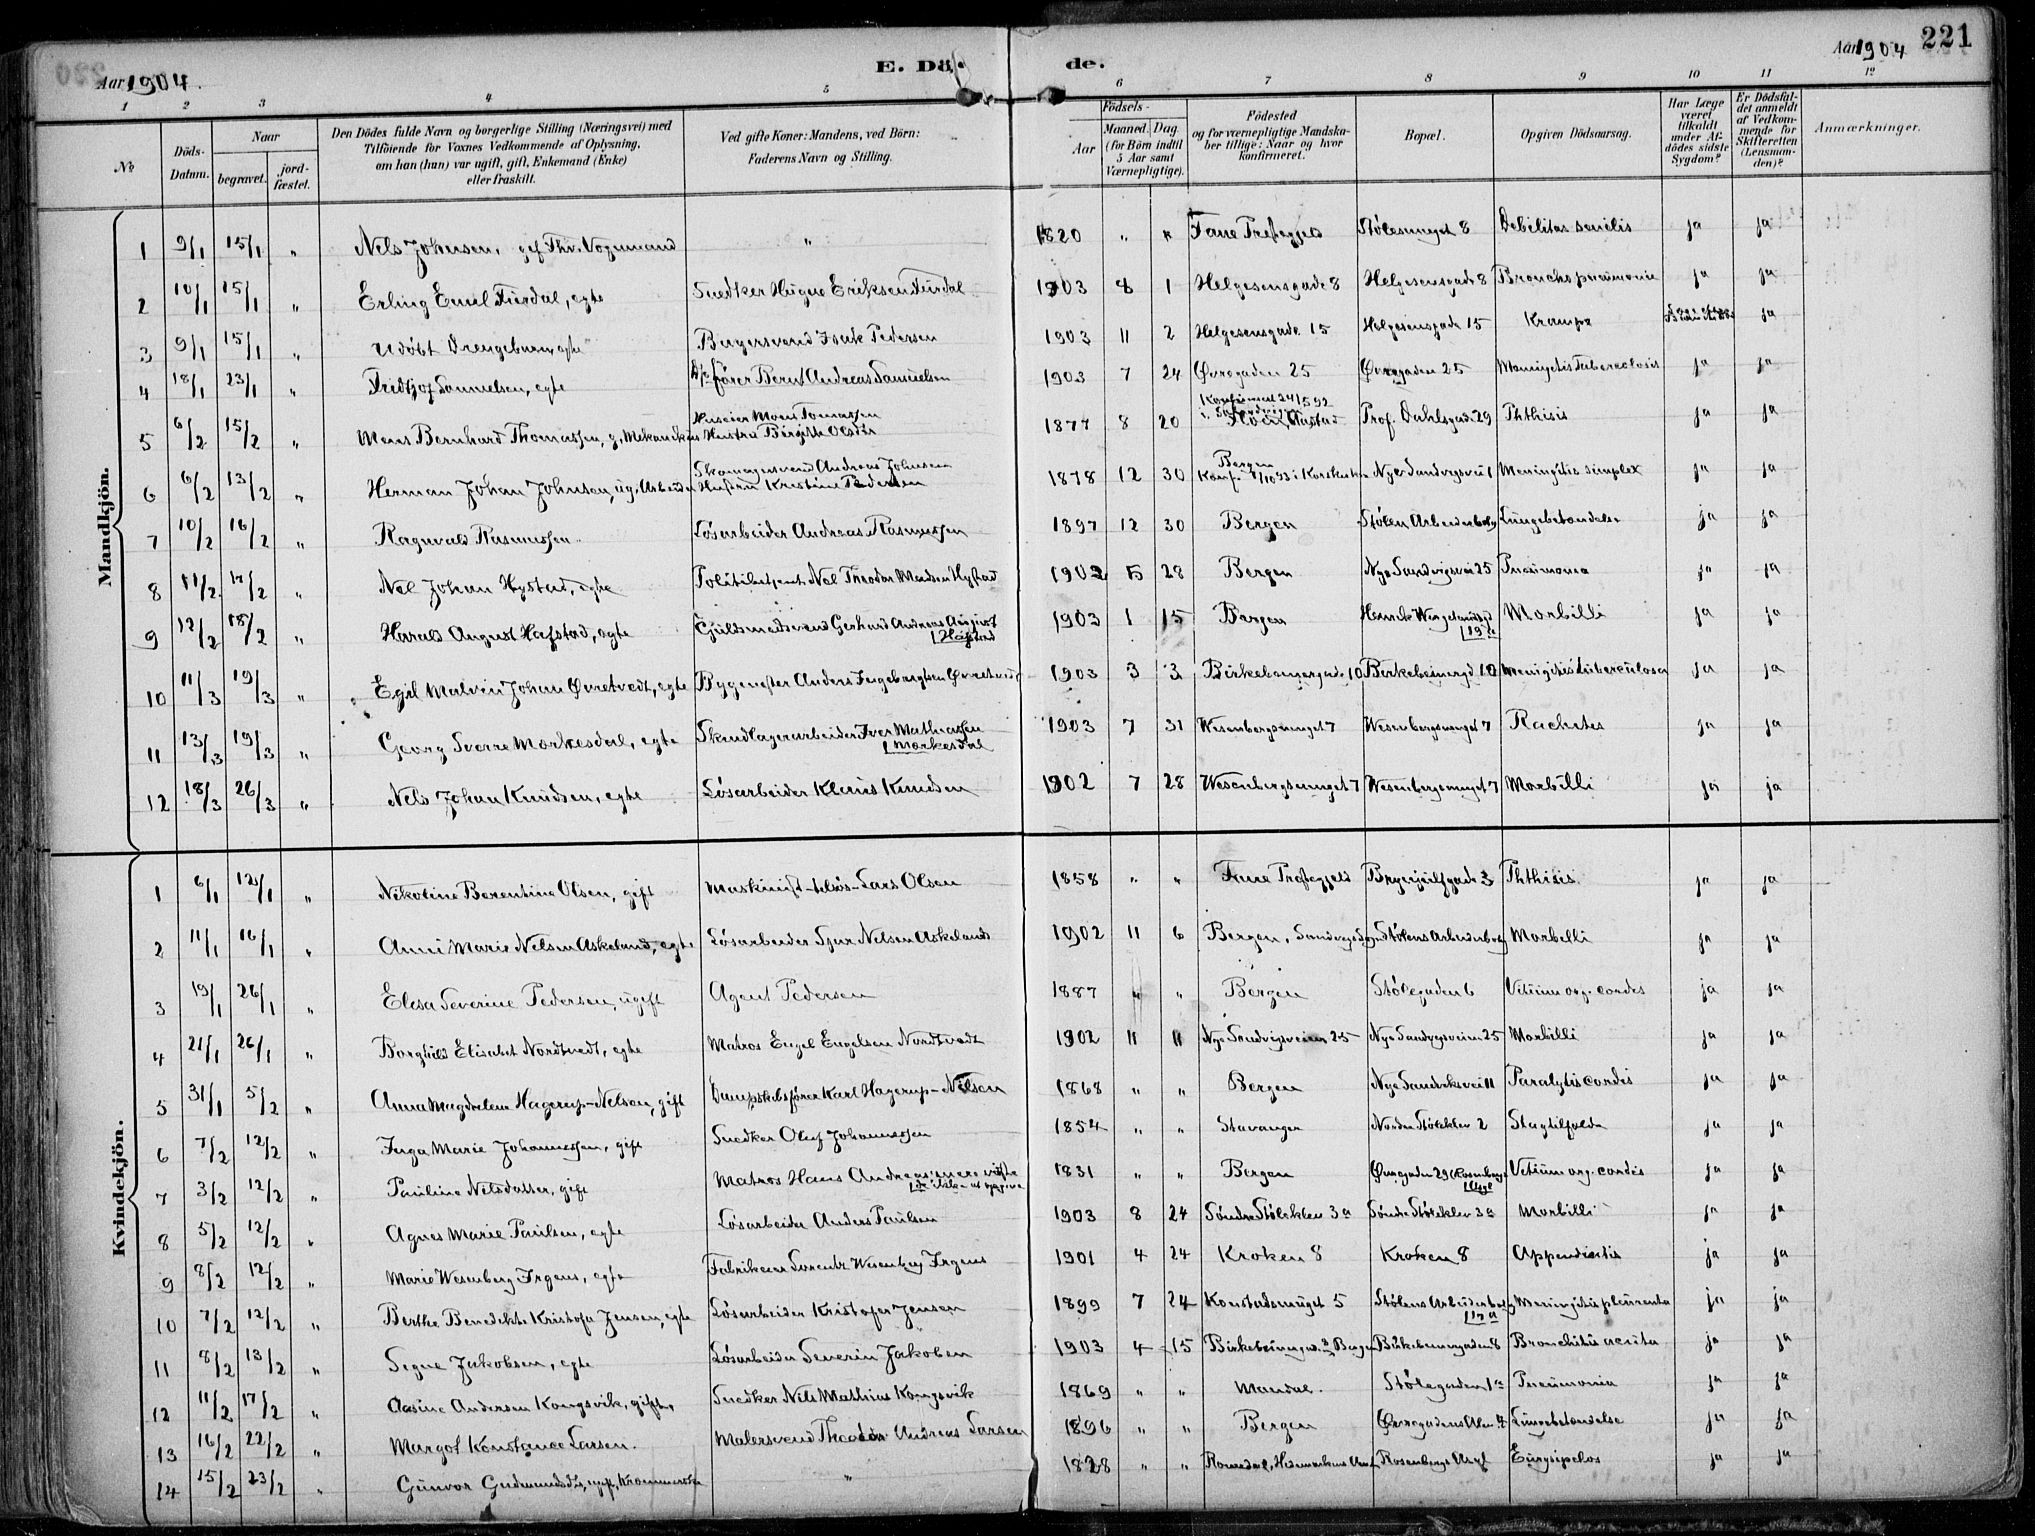 221
Aar 1904.
E. Dö
de.
Aar 1904
1 2 3 4 5 6 7 8 9 10 11 12
№
Döds-Datum.
Naar
begravet.
jord-fæstet.
Den Dödes fulde Navn og borgerlige Stilling (Næringsvei) med
Tilföiende for Voxnes Vedkommende af Oplysning,
om han (hun) var ugift, gift, Enkemand (Enke)
eller fraskilt.
Ved gifte Koner: Mandens, ved Börn:
Faderens Navn og Stilling.
Födsels-
Aar
Maaned. Dag.
(for Börn indtil
5 Aar samt
Værnepligtige).
Födested
og for værnepligtige Mandska-
ber tillige: Naar og hvor
konfirmeret.
Bopæl.
Opgiven Dödsaarsag.
Har Læge
været
tilkaldt
under Af-
dödes sidste
Sygdom?
Er Dödsfal-
det anmeldt
af Vedkom-
mende for
Skifteretten
(Lensman-
den)?
Anmærkninger.
Mandkjön.
1 9/1 15/1 " Nels Johnsen, " 1820 " " Fane Stølesmuget 8 Debilitas senilis ja ja
2 10/1 15/1 " Erling Emil Furdal, egte Snedker Eriksen Furdal 1903 8 1 Helgesensgade 8 Helgesensgade 8 Bronchopneumonie ja ja
3 9/1 15/1 " Udøbt Drengebarn, egte Bagersvend Isak Pedersen 1903 11 2 Helgesensgade 15 Helgesensgade 15 Krampe ja
4 18/1 23/1 " Fridtjof Samuelsen, egte fører Bernt Andreas Samuelsen 1903 7 24 Øvregaden 25 Øvregaden 25 Meningitis Tuberculosis ja ja
5 6/2 15/2 " Mons Bernhard Thomassen, Huseier Mons Tomassen
Hustru 1877 8 20 Konfirmeret 24/5 92 Prof. Dahlsgade 29 Phthisis ja ja
6 6/2 13/2 " Herman Johan Johnsen, ug. Arbeider Skomagersvend Andreas Johnsen
Hustru Kristine Pedersen 1878 12 30 Bergen
Konf. 1/10 93 i Korskirken Nye Sandvigsvei 1 Meningitis simplex ja ja
7 10/2 16/2 " Ragnvald Rasmussen Løsarbeider Andreas Rasmussen 1897 12 30 Bergen Stølen Arbeiderbolig Lungebetændelse ja ja
8 11/2 17/2 " Nel Johan Hystad, egte Politibetjent Nel Theodor Madsen Hystad 1902 5 28 Bergen Nye Sandvigsvei 25 Pneumonia ja ja
9 12/2 18/2 " Harald August Hafstad, egte Guldsmedsvend Gerhard Andreas
Hafstad 1903 1 15 Bergen Henrik Wergelandsgd
19 Morbilli ja ja
10 11/3 19/3 " Egil Malvin Johan Øvretvedt, egte Bygmester Anders Ingebrigtsen Øvretvedt 1903 3 3 Birkebeinergade 10 Birkebeinergd 10 Meningitis tuberculosa ja ja
11 13/3 19/3 " Georg Sverre Morkesdal, egte Skindlagerarbeider Iver Mathiassen
Morkesdal 1903 7 31 Wesenbergsmuget 7 Wesenbergsmuget 7 Rachitis ja ja
12 18/3 26/3 " Nels Johan Knudsen, egte Løsarbeider Klaus Knudsen 1902 7 28 Wesenbergsmuget 7 Wesenbergsmuget 7 Morbilli ja ja
Kvindekjön.
1 6/1 12/1 " Nikoline Berentine Olsen, gift Maskinist Lars Olsen 1858 " " Fane Phthisis. ja ja
2 11/1 16/1 " Anni Marie Nelsen Askeland, egte Løsarbeider Sjur Nelsen Askeland 1902 11 6 Bergen, Stølens Arbeiderbolig Morbilli ja ja
3 19/1 26/1 " Elesa Severine Pedersen, ugift Agent Pedersen 1887 " " Bergen Stølegaden 6 Vitium org. cordis ja ja
4 21/1 26/1 " Borghild Elisabet Nordtvedt, egte Matros Engel Engelsen Nordtvedt 1902 11 11 Nye Sandvigsveien 25 Nye Sandvigsveien 25 Morbilli ja ja
5 31/1 5/2 " Anna Magdalene Hagerup-Nelsen, gift Dampskibsfører Karl Hagerup-Nelsen 1868 " " Bergen Nye Sandviksvei 11 Paralytis cordis ja ja
6 7/2 12/2 " Inga Marie Johannessen, gift Snedker Oluf Johannessen 1854 " " Stavanger Nordre Støleklev 2 Slagtilfælde ja ja
7 3/2 12/2 " Pauline Nelsdatter, gift Matros Hans Andreas, mere vidste
de ikke at opgive 1831 " " Bergen Øvregaden 29 (Rosenbergs
Asyl Vitium org. cordis ja ja
8 5/2 12/2 " Agnes Marie Paulsen, egte Løsarbeider Anders Paulsen 1903 8 24 Søndre Støleklev 3a Søndre Støleklev 3a Morbilli ja ja
9 8/2 12/2 " Marie Wesenberg Irgens, egte Fabrikeier Lorentz Wesenberg Irgens 1901 4 24 Kroken 8 Kroken 8 Appendicitis ja ja
10 7/2 12/2 " Berthe Benedikte Kristofa Jensen, egte Løsarbeider Kristofer Jensen 1899 7 24 Konstadsmuget 5 Stølens Arbeiderbolig Meningitis ja ja
11 8/2 13/2 " Signe Jakobsen, egte Løsarbeider Severin Jakobsen 1903 4 15 Birkebeinergd. Bergen Birkebeinergaden 8 Bronchitis acuta ja ja
12 11/2 17/2 " Aasine Andersen Kongsvik, gift, Snedker Nils Mathias Kongsvik 1869 " " Mandal. Stølegaden 1a Pneumonia ja ja
13 16/2 22/2 " Margot Konstance Larsen. Malersvend Theodor Andreas Larsen 1896 " " Bergen Lungebetændelse ja ja
14 15/2 23/2 " Gunvor Gudmundsd., ugift, " 1828 " " Romedal, Hedemarkens Amt Rosenbergs Asyl Erysipelas ja ja